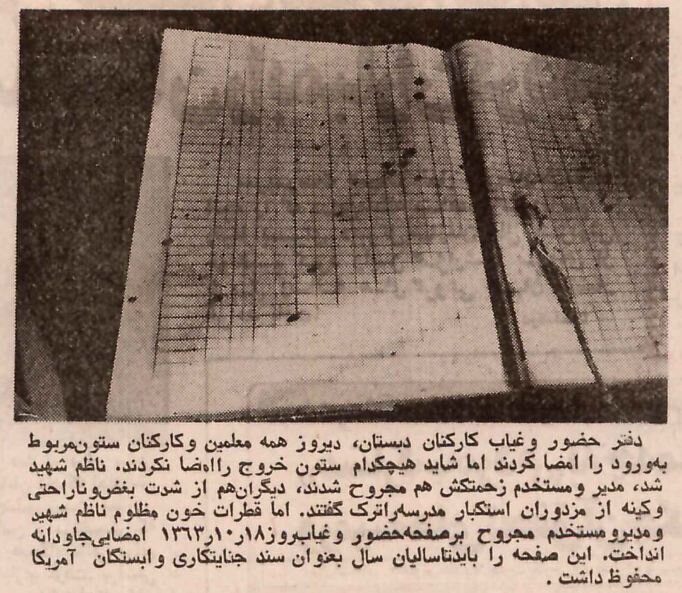 دفتر حضور وغیاب کارکنان دبستان، دیروز همه معلمین وکارکنان ستون‌مربوط
به‌ورود را امضا کردند اما شاید هیچکدام ستون خروج راامضا نکردند. ناظم شهید
شد، مدیر ومستخدم زحمتکش هم مجروح شدند، دیگران‌هم از شدت بغض‌وناراحتی
وکینه از مزدوران استکبار مدرسه‌راترک گفتند. اما قطرات خون مظلوم ناظم شهید
ومدیرومستخدم مجروح برصفحه‌حضور وغیاب‌روز۱۸ر۱۰ر۱۳۶۳ امضایی‌جاودانه
انداخت. این صفحه را بایدتاسالیان سال بعنوان سند جنایتکاری وابستگان آمریکا
محفوظ داشت .